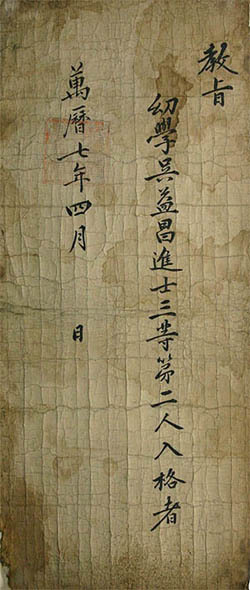 教旨
幼學吳益昌進士三等第二人入格者
萬曆七年四月 日